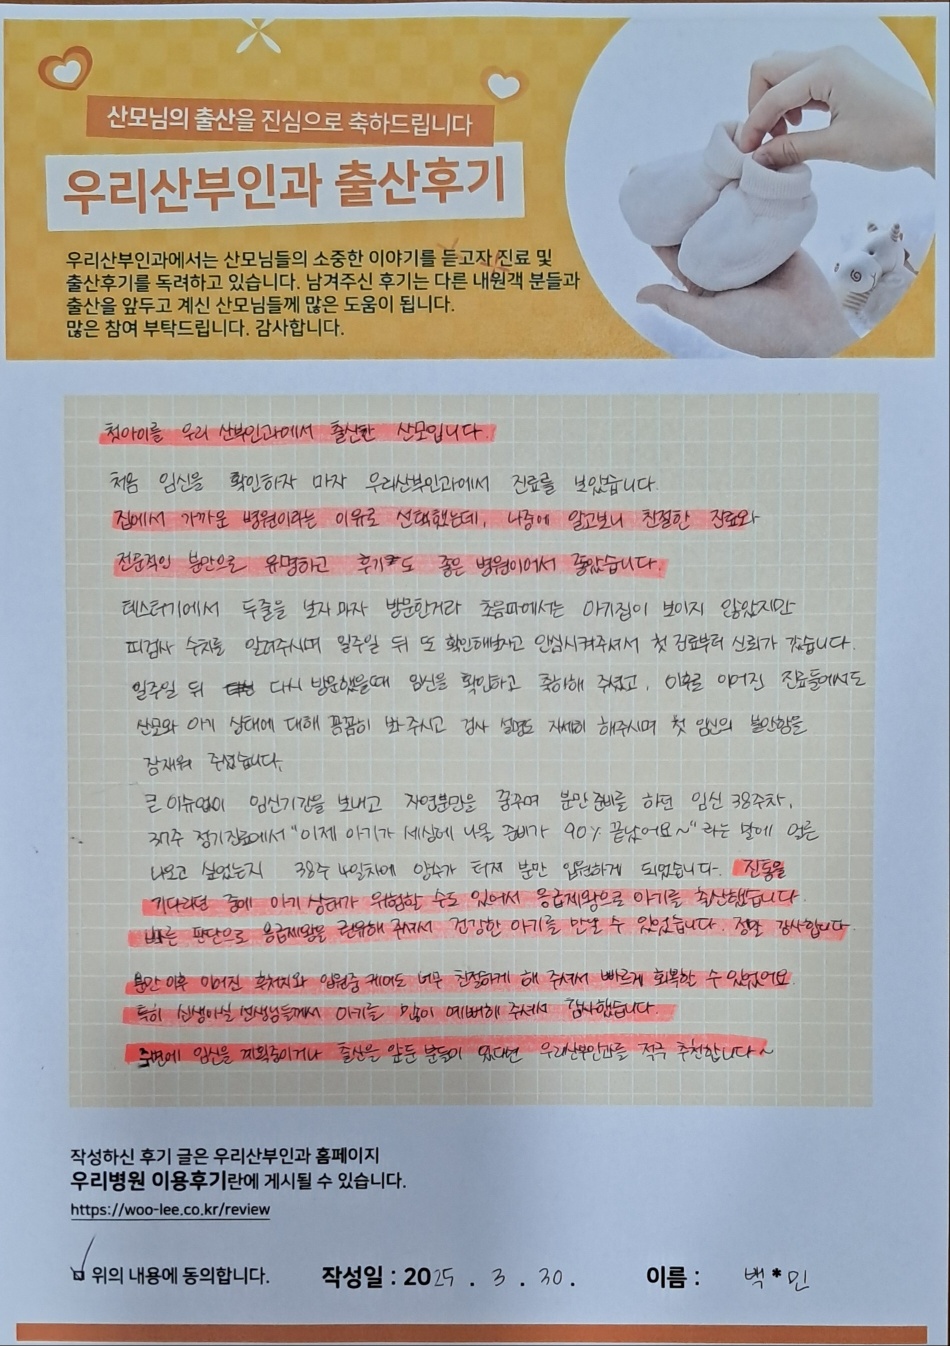 산모님의 출산을 진심으로 축하드립니다
우리산부인과 출산후기
우리산부인과에서는 산모님들의 소중한 이야기를 듣고자 진료 및
출산후기를 독려하고 있습니다. 남겨주신 후기는 다른 내원객 분들과
출산을 앞두고 계신 산모님들께 많은 도움이 됩니다.
많은 참여 부탁드립니다. 감사합니다.
첫아이를 우리 산부인과에서 출산한 산모입니다.
처음 임신을 확인하자 마자 우리산부인과에서 진료를 보았습니다.
집에서 가까운 병원이라는 이유로 선택했는데, 나중에 알고보니 친절한 진료와
전문적인 분만으로 유명하고 후기도 좋은 병원이어서 좋았습니다.
테스터기에서 두줄을 보자마자 방문한거라 초음파에서는 아기집이 보이지 않았지만
피검사 수치를 알려주시며 일주일 뒤 또 확인해보자고 안심시켜주셔서 첫 진료부터 신뢰가 갔습니다.
일주일 뒤 다시 방문했을때 임신을 확인하고 축하해 주셨고, 이후로 이어진 진료들에서도
산모와 아기 상태에 대해 꼼꼼히 봐주시고 검사 설명도 자세히 해주시며 첫 임신의 불안함을
잠재워 주셨습니다.
큰 이슈없이 임신기간을 보내고 자연분만을 꿈꾸며 분만 준비를 하던 임신 38주차,
37주 정기진료에서 "이제 아기가 세상에 나올 준비가 90% 끝났어요~" 라는 말에 얼른
나오고 싶었는지 38주 4일차에 양수가 터져 분만 입원하게 되었습니다. 진통을
기다리던 중에 아기 상태가 위험할 수도 있어서 응급제왕으로 아기를 출산했습니다.
빠른 판단으로 응급제왕을 권유해 주셔서 건강한 아기를 만날 수 있었습니다. 정말 감사합니다.
분만 이후 이어진 후처치와 입원중 케어도 너무 친절하게 해 주셔서 빠르게 회복할 수 있었어요
특히 신생아실 선생님들께서 아기를 많이 예뻐해 주셔서 감사했습니다.
주변에 임신을 계획중이거나 출산을 앞둔 분들이 있다면 우리산부인과를 적극 추천합니다~
작성하신 후기 글은 우리산부인과 홈페이지
우리병원 이용후기란에 게시될 수 있습니다.
https://woo-lee.co.kr/review
위의 내용에 동의합니다. 작성일 : 2025 . 3 . 30 . 이름 : 백*민